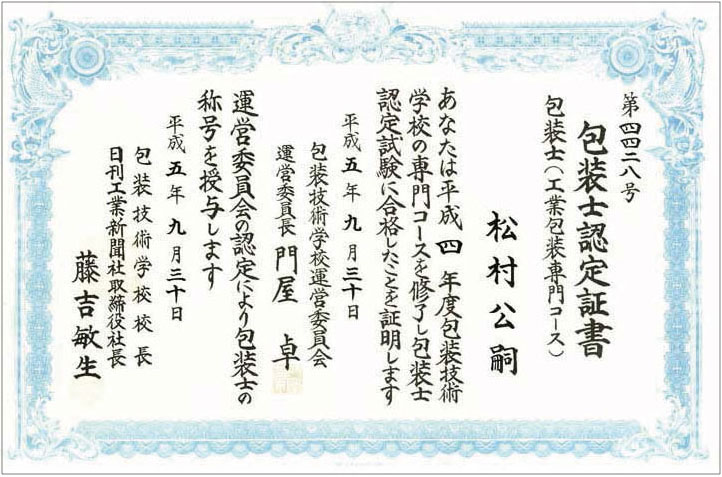 第四四二八号
包装士認定証書
包装士（工業包装専門コース）
松村公嗣
あなたは平成四年度包装技術
学校の専門コースを修了し包装士
認定試験に合格したことを証明します
平成五年九月三十日
包装技術学校運営委員会
運営委員長 門屋 卓
運営委員会の認定により包装士の
称号を授与します
平成五年九月三十日
包装技術学校校長
日刊工業新聞社取締役社長
藤吉敏生